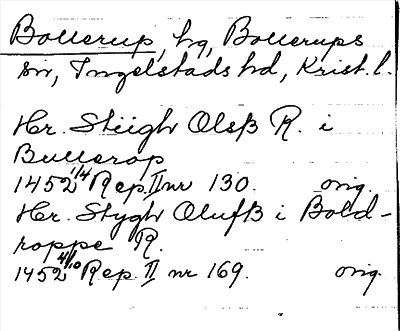 Bollerup, hg, Bollerups
sn, Ingelstads hd, Krist. l.
Hr. Stiigh Olsß R. i
Bullerop
1452 1/4 Rep. II nr 130. orig.
Hr. Stygh Olufß i Bold-
roppe R.
1452 4/10 Rep. II nr 169. orig.